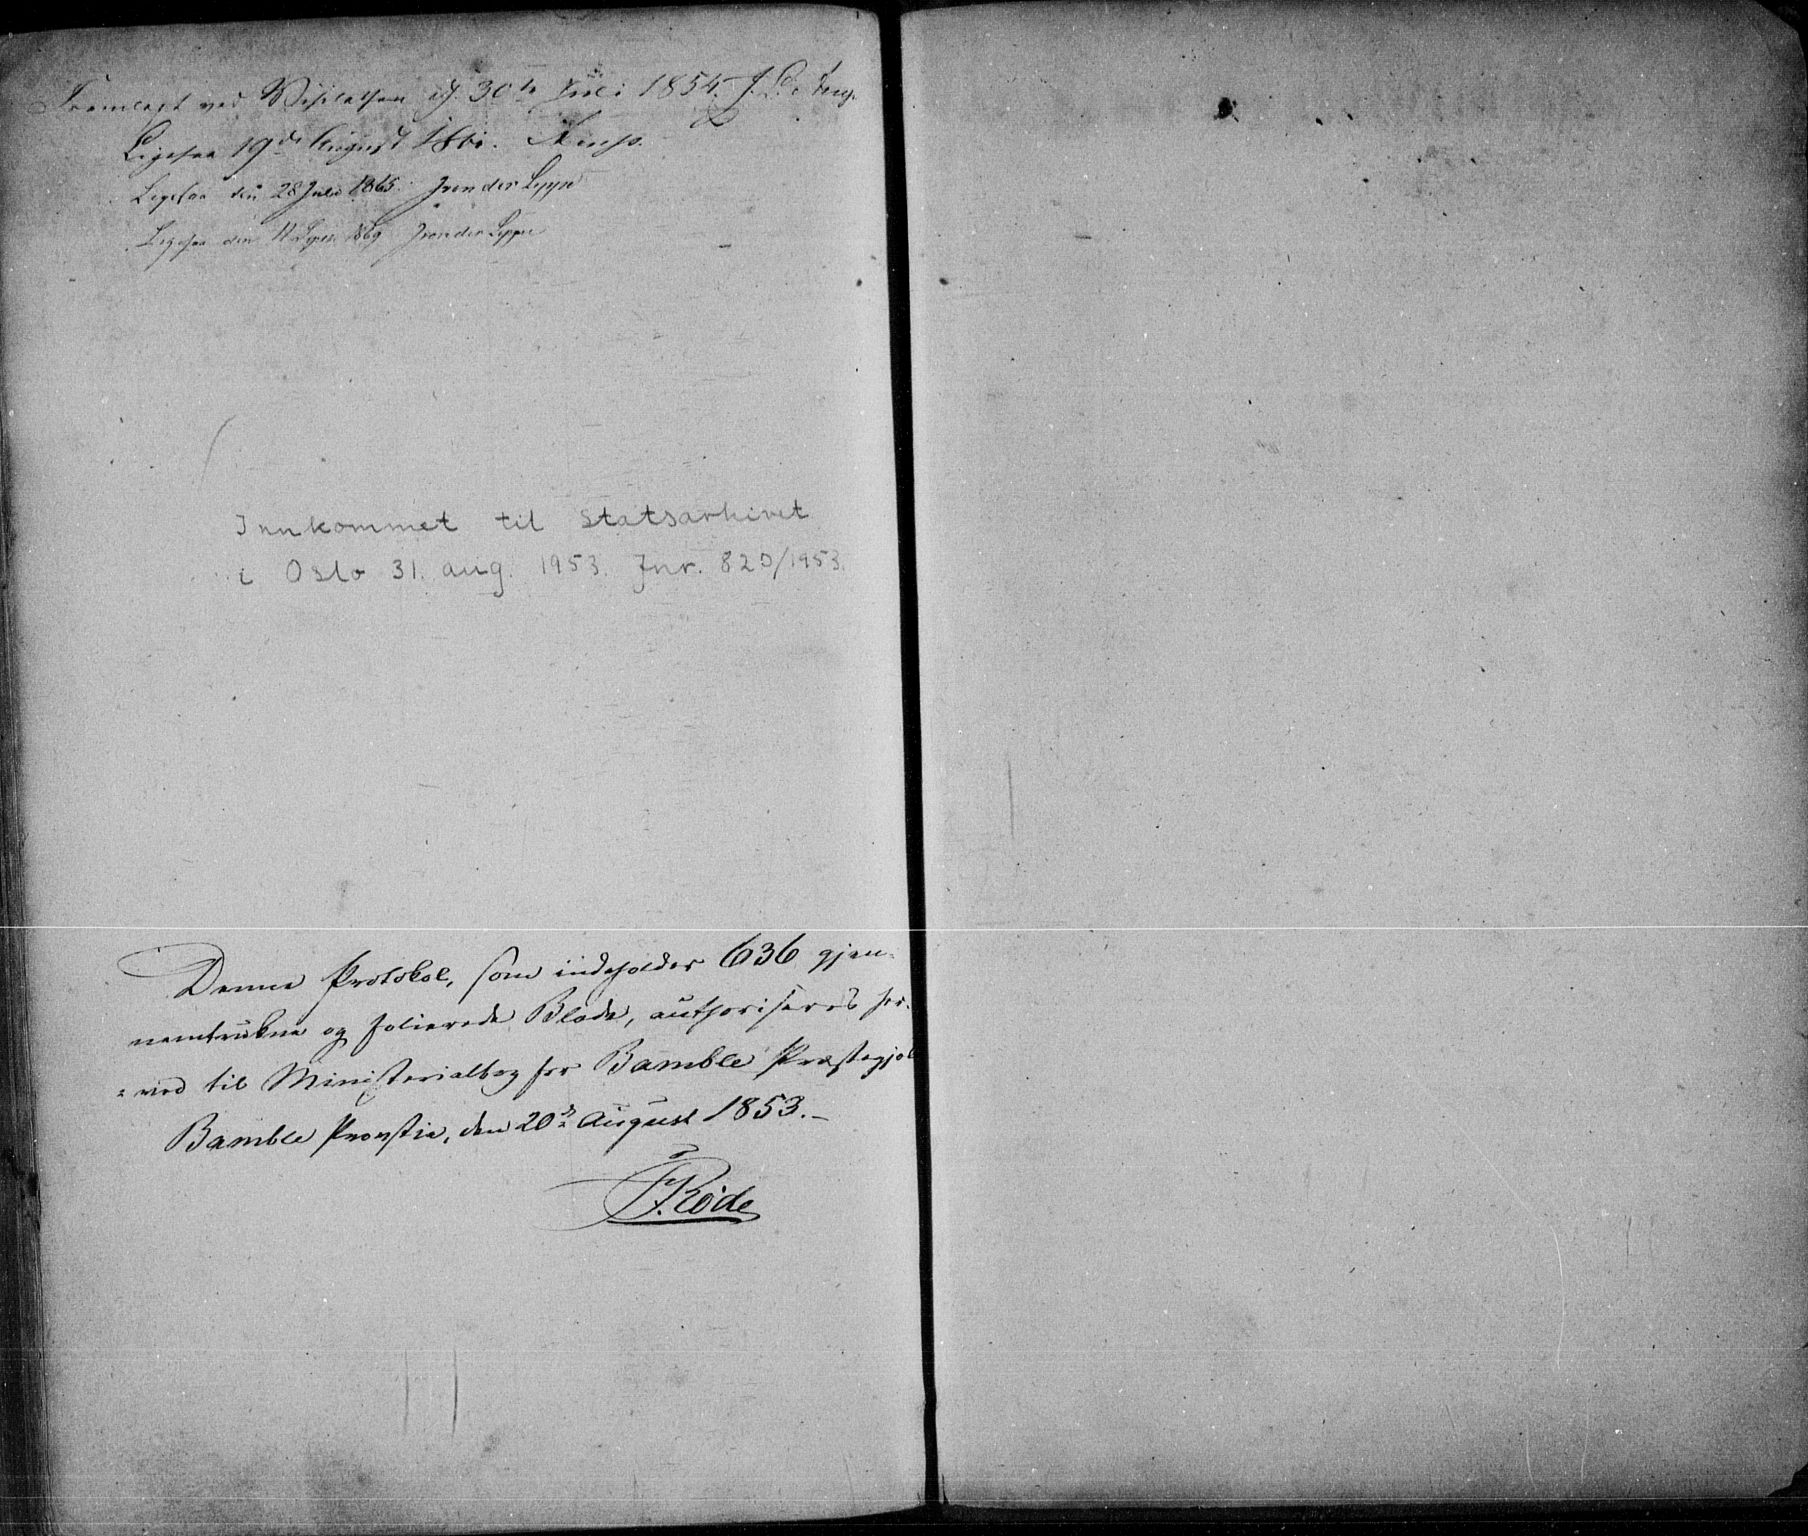 Fremlagt ved Visitatsen d. 30te Juli 1854.
Ligesaa 19de August
Ligesaa den 28 Juli 1865. J von der Lippe
Ligesaa den 1869 J von der Lippe
Innkommet til Statsarkivet
i Oslo 31. aug. 1953. Jnr. 820/1953.
Denne Protokol, som indeholder 636 gjen-
nemtrukne og folierede Blade, authoriseres her-
= ved til Ministerialbog for Bamble Præstegjeld
Bamble Provstie, den 20de August 1853.-
F. Rode